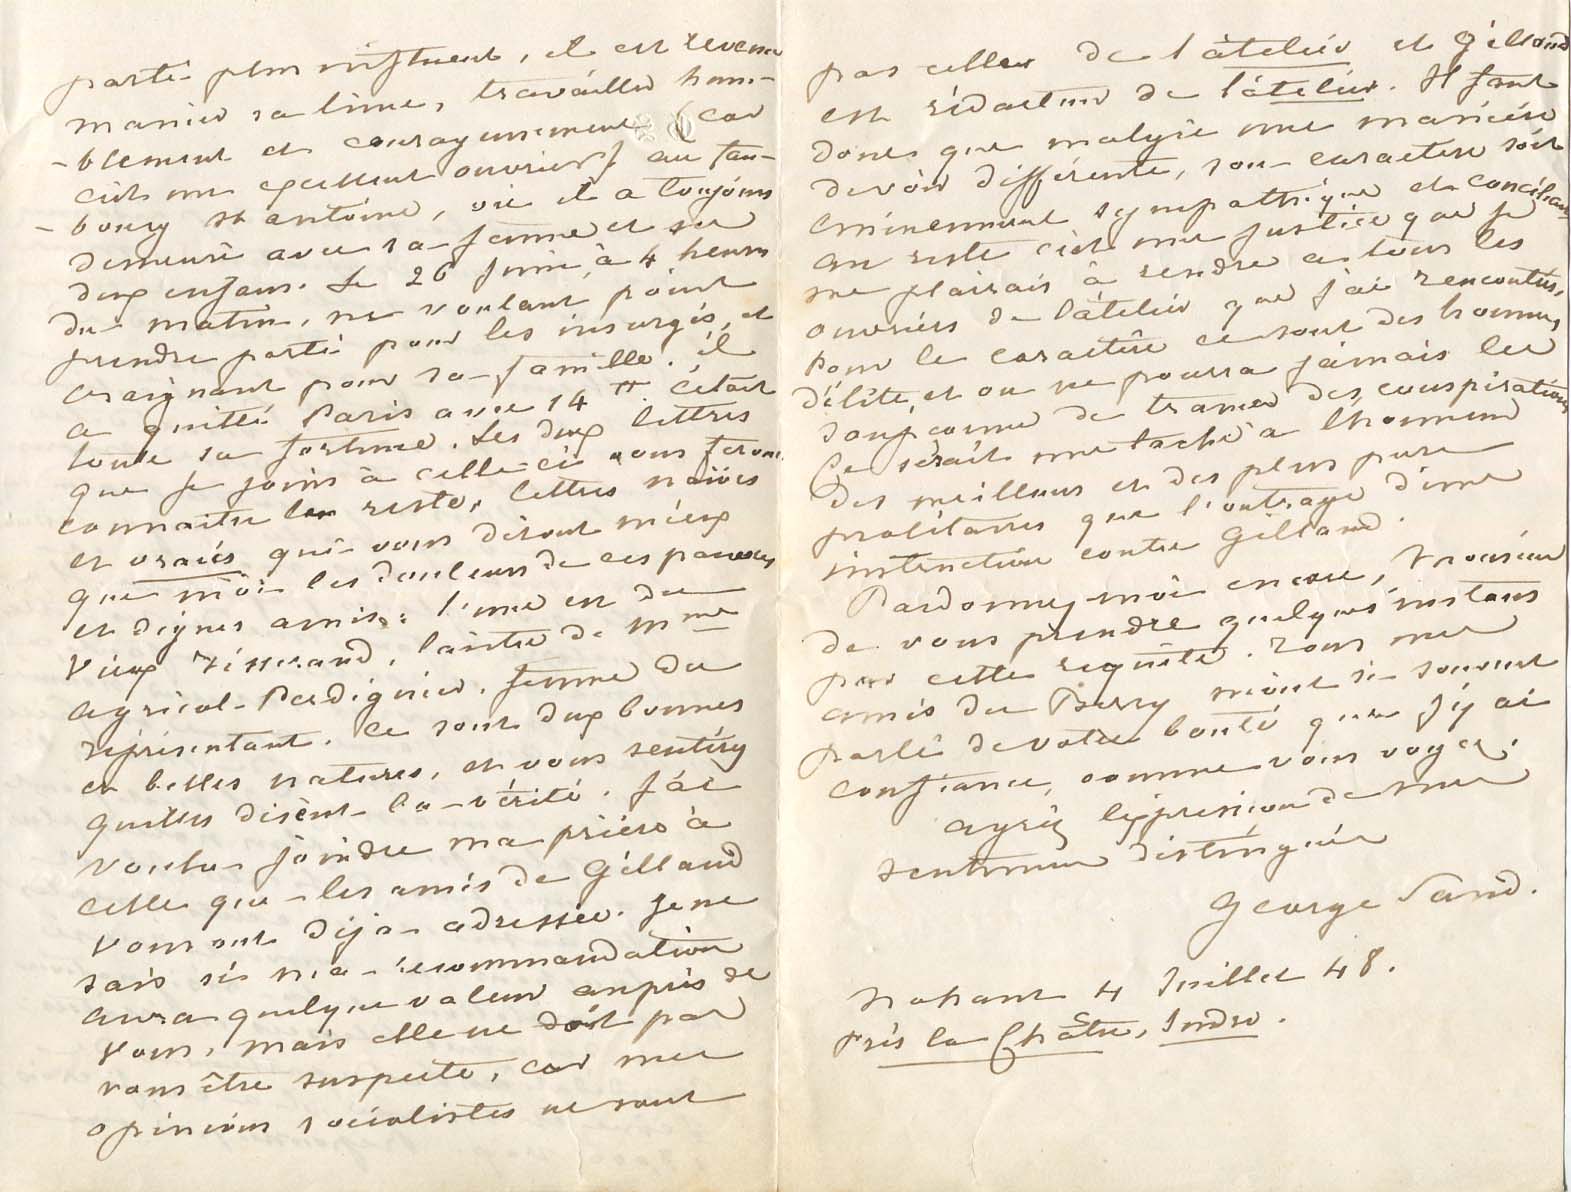 parti plus influent, il est revenu
manier sa lime, travailler hum-
-blement et courageusement (car
c'est un excellent ouvrier) au fau-
-bourg St antoine, où il a toujours
demeuré avec sa femme et ses
deux enfans. Le 26 juin, à 4 heures
du matin, ne voulant point
prendre parti pour les insurgés, et
craignant pour sa famille. il
a quitté Paris avec 14 tt. c'était
toute sa fortune. Les deux lettres
que je joins à celle-ci vous feront
connaitre le reste, lettres naïves
et vraies qui vous diront mieux
que moi les douleurs de ces pauvres
et dignes amis: l'une est du
vieux tisserand, l'autre de Mme
Agricol-Perdiguier. femme du
représentant. Ce sont deux bonnes
et belles natures, et vous sentirez
qu'elles disent la vérité. J'ai
voulu joindre ma prière à
celle que les amis de Gilland
vous ont déjà adressée. Je ne
sais si ma recommandation
aura quelque valeur auprès de
vous, mais elle ne doit pas
vous être suspecte, car mes
opinions socialistes ne sont
pas celles de l'atelier et Gilland
est rédacteur de l'atelier. Il faut
donc que malgré une manière
de voir différente, son caractère soit
éminemment sympathique et conciliant
au reste c'est une justice que je
me plairais à rendre à tous les
ouvriers de l'atelier que j'ai rencontrés,
Pour le caractère ce sont des hommes
d'élite, et on ne pourra jamais les
soupçonner de tramer des conspirations
Ce serait une tache à l'honneur
des meilleurs et des plus purs
prolétaires que l'outrage d'une
instruction contre Gilland.
Pardonnez-moi encore, Monsieur
de vous prendre quelques instans
par cette requête. Tous mes
amis du Berry m'ont si souvent
parlé de votre bonté que j'y ai
confiance, comme vous voyez.
agréez l'expression de mes
sentimens distingués
George Sand.
Nohant 4 Juillet 48.
Près la Châtre, Indre.